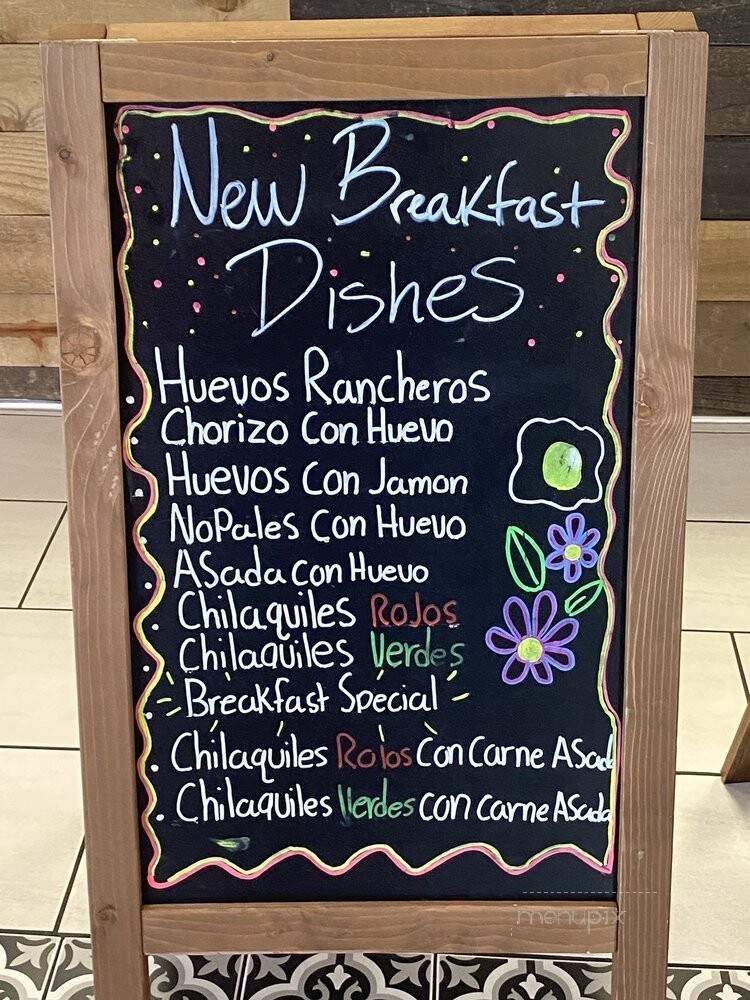 New Breakfast
Dishes
. Huevos Rancheros
. Chorizo Con Huevo
. Huevos Con Jamon
. Nopales Con Huevo
. Asada con Huevo
. Chilaquiles Rojos
. Chilaquiles Verdes
. Breakfast Special
. Chilaquiles Rojos Con Carne Asada
. Chilaquiles Verdes con carne Asada
menupix